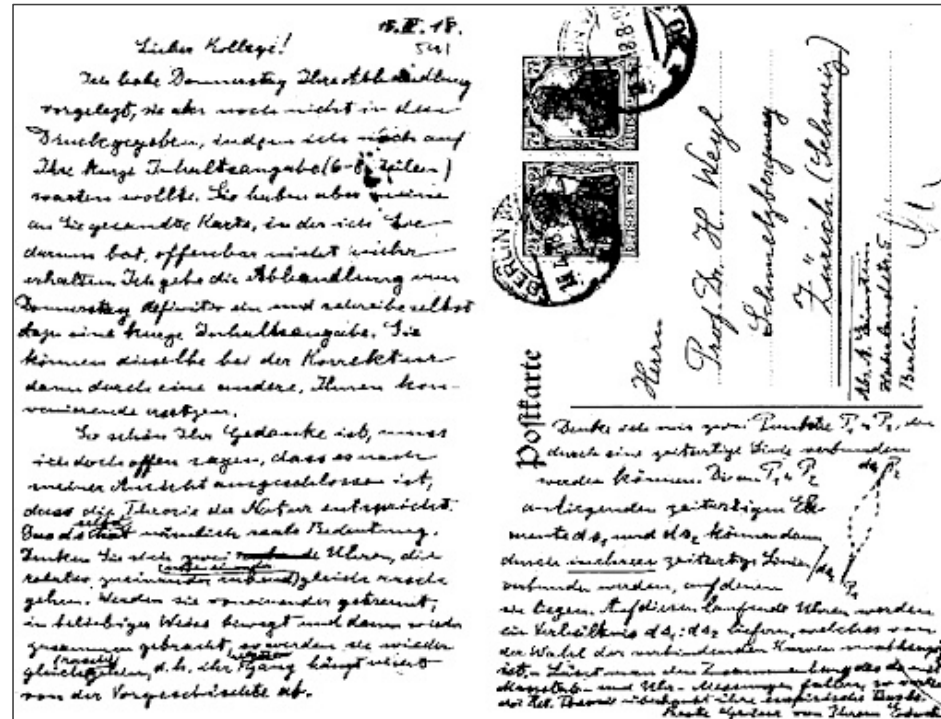 15.IV.18.
541
Lieber Kollege!
Ich habe Donnerstag Ihre Abhandlung
vorgelegt, sie aber noch nicht in den
Druck gegeben, indem ich noch auf
Ihre kurze Inhaltsangabe (6-8 Zeilen)
warten wollte. Sie haben aber meine
an Sie gesandte Karte, in der ich Sie
darum bat, offenbar nicht
erhalten. Ich gebe die Abhandlung nun
Donnerstag definitiv ein und schreibe selbst
dazu eine kurze Inhaltsangabe. Sie
können dieselbe bei der Korrektur
dann durch eine andere, Ihnen kon-
venierende ersetzen.
So schön Ihr Gedanke ist, muss
ich doch offen sagen, dass es nach
meiner Ansicht ausgeschlossen ist,
dass die Theorie der Natur entspricht.
Das ds selbst hat nämlich reale Bedeutung.
Denken Sie sich zwei Uhren, die
relativ zueinander ruhend gleich rasch
gehen. Werden sie voneinander getrennt,
in beliebiger Weise bewegt und dann wieder
zusammen gebracht, so werden sie wieder
gleich (rasch) gehen, d.h. ihr Gang hängt nicht
von der Vorgeschichte ab.
BERLIN
BERLIN
Postkarte
Herrn
Prof. Dr. H. Weyl
Schmelzbergweg
Zürich (Schweiz)
Abs. A. Einstein
Haberlandstr. 5
Berlin.
Denke ich mir zwei Punkte P₁ u P₂, die
durch eine zeitartige Linie verbunden
werden können. Die an P₁ u P₂
anliegenden zeitartigen Ele-
mente ds₁ und ds₂ können dann
durch mehrere zeitartige Linien
verbunden werden, auf denen
sie liegen. Auf diesen laufende Uhren werden
ein Verhältnis ds₁:ds₂ liefern, welches von
der Wahl der verbindenden Kurven unabhängig
ist. – Lässt man den Zusammenhang des ds mit
Massstab- und Uhr-Messungen fallen, so verliert
die Rel. Theorie überhaupt ihre empirische Basis.
Beste Grüsse von Ihrem
ds₂ P₂
ds₁ P₁